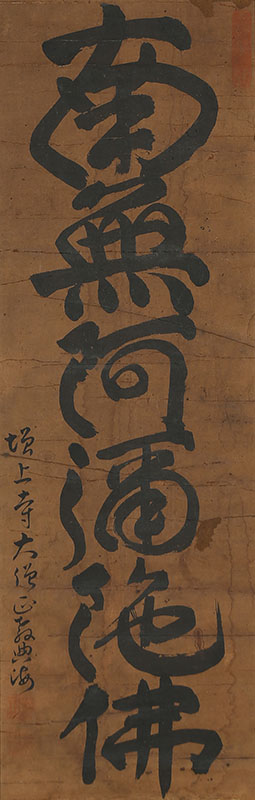 南無阿彌陀佛
增上寺大僧正教典海